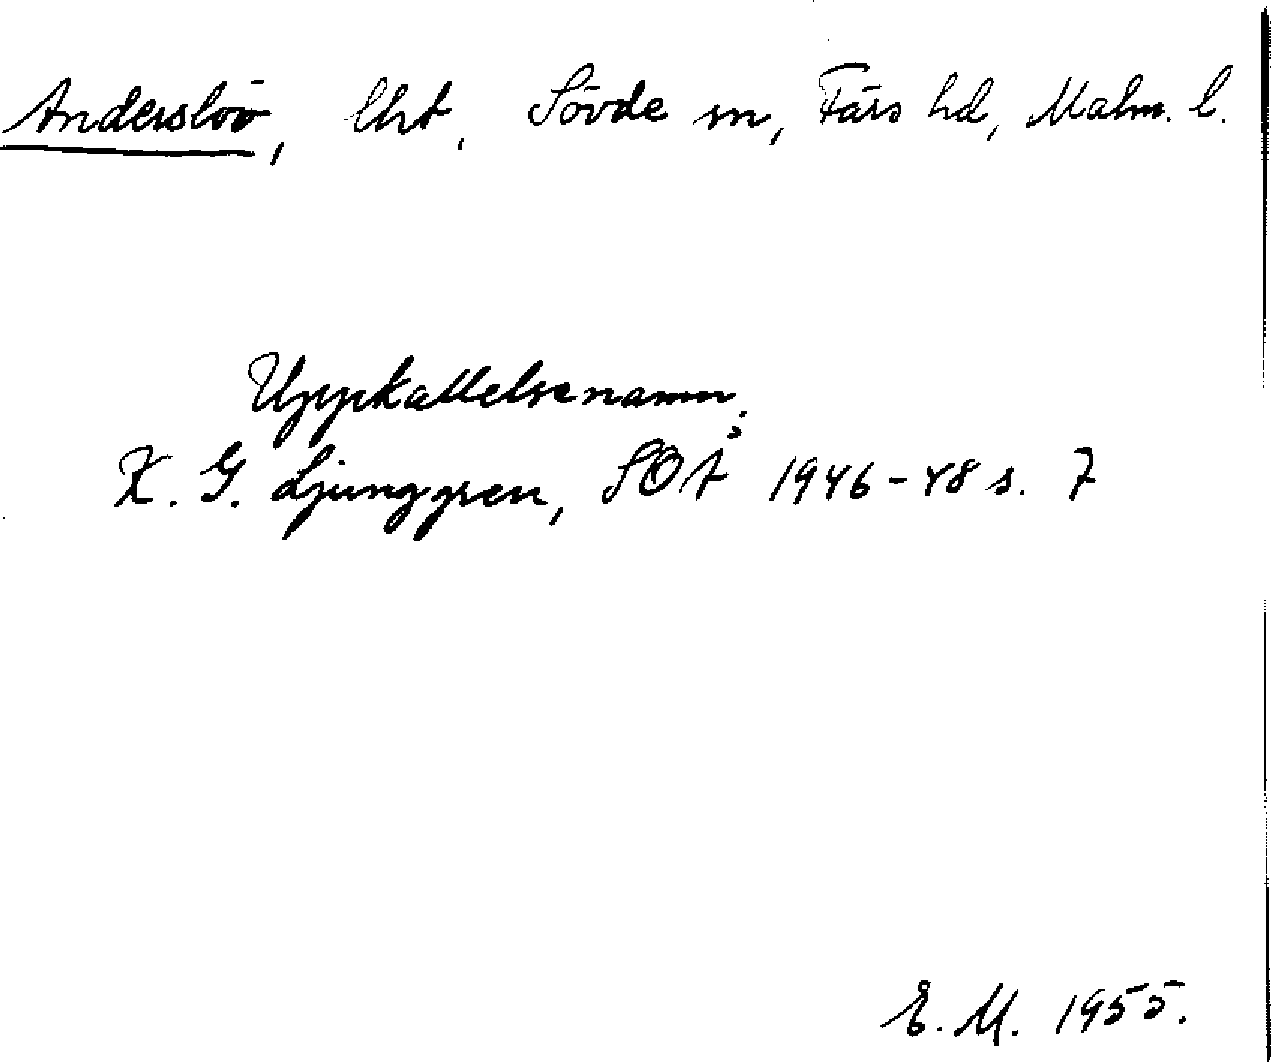 Anderslöv, lht, Sövde sn, Färs hd, Malm. l.
Uppkallelsenamn;
K. G. Ljunggren, SOÅ 1946-48 s. 7
E. M. 1955.